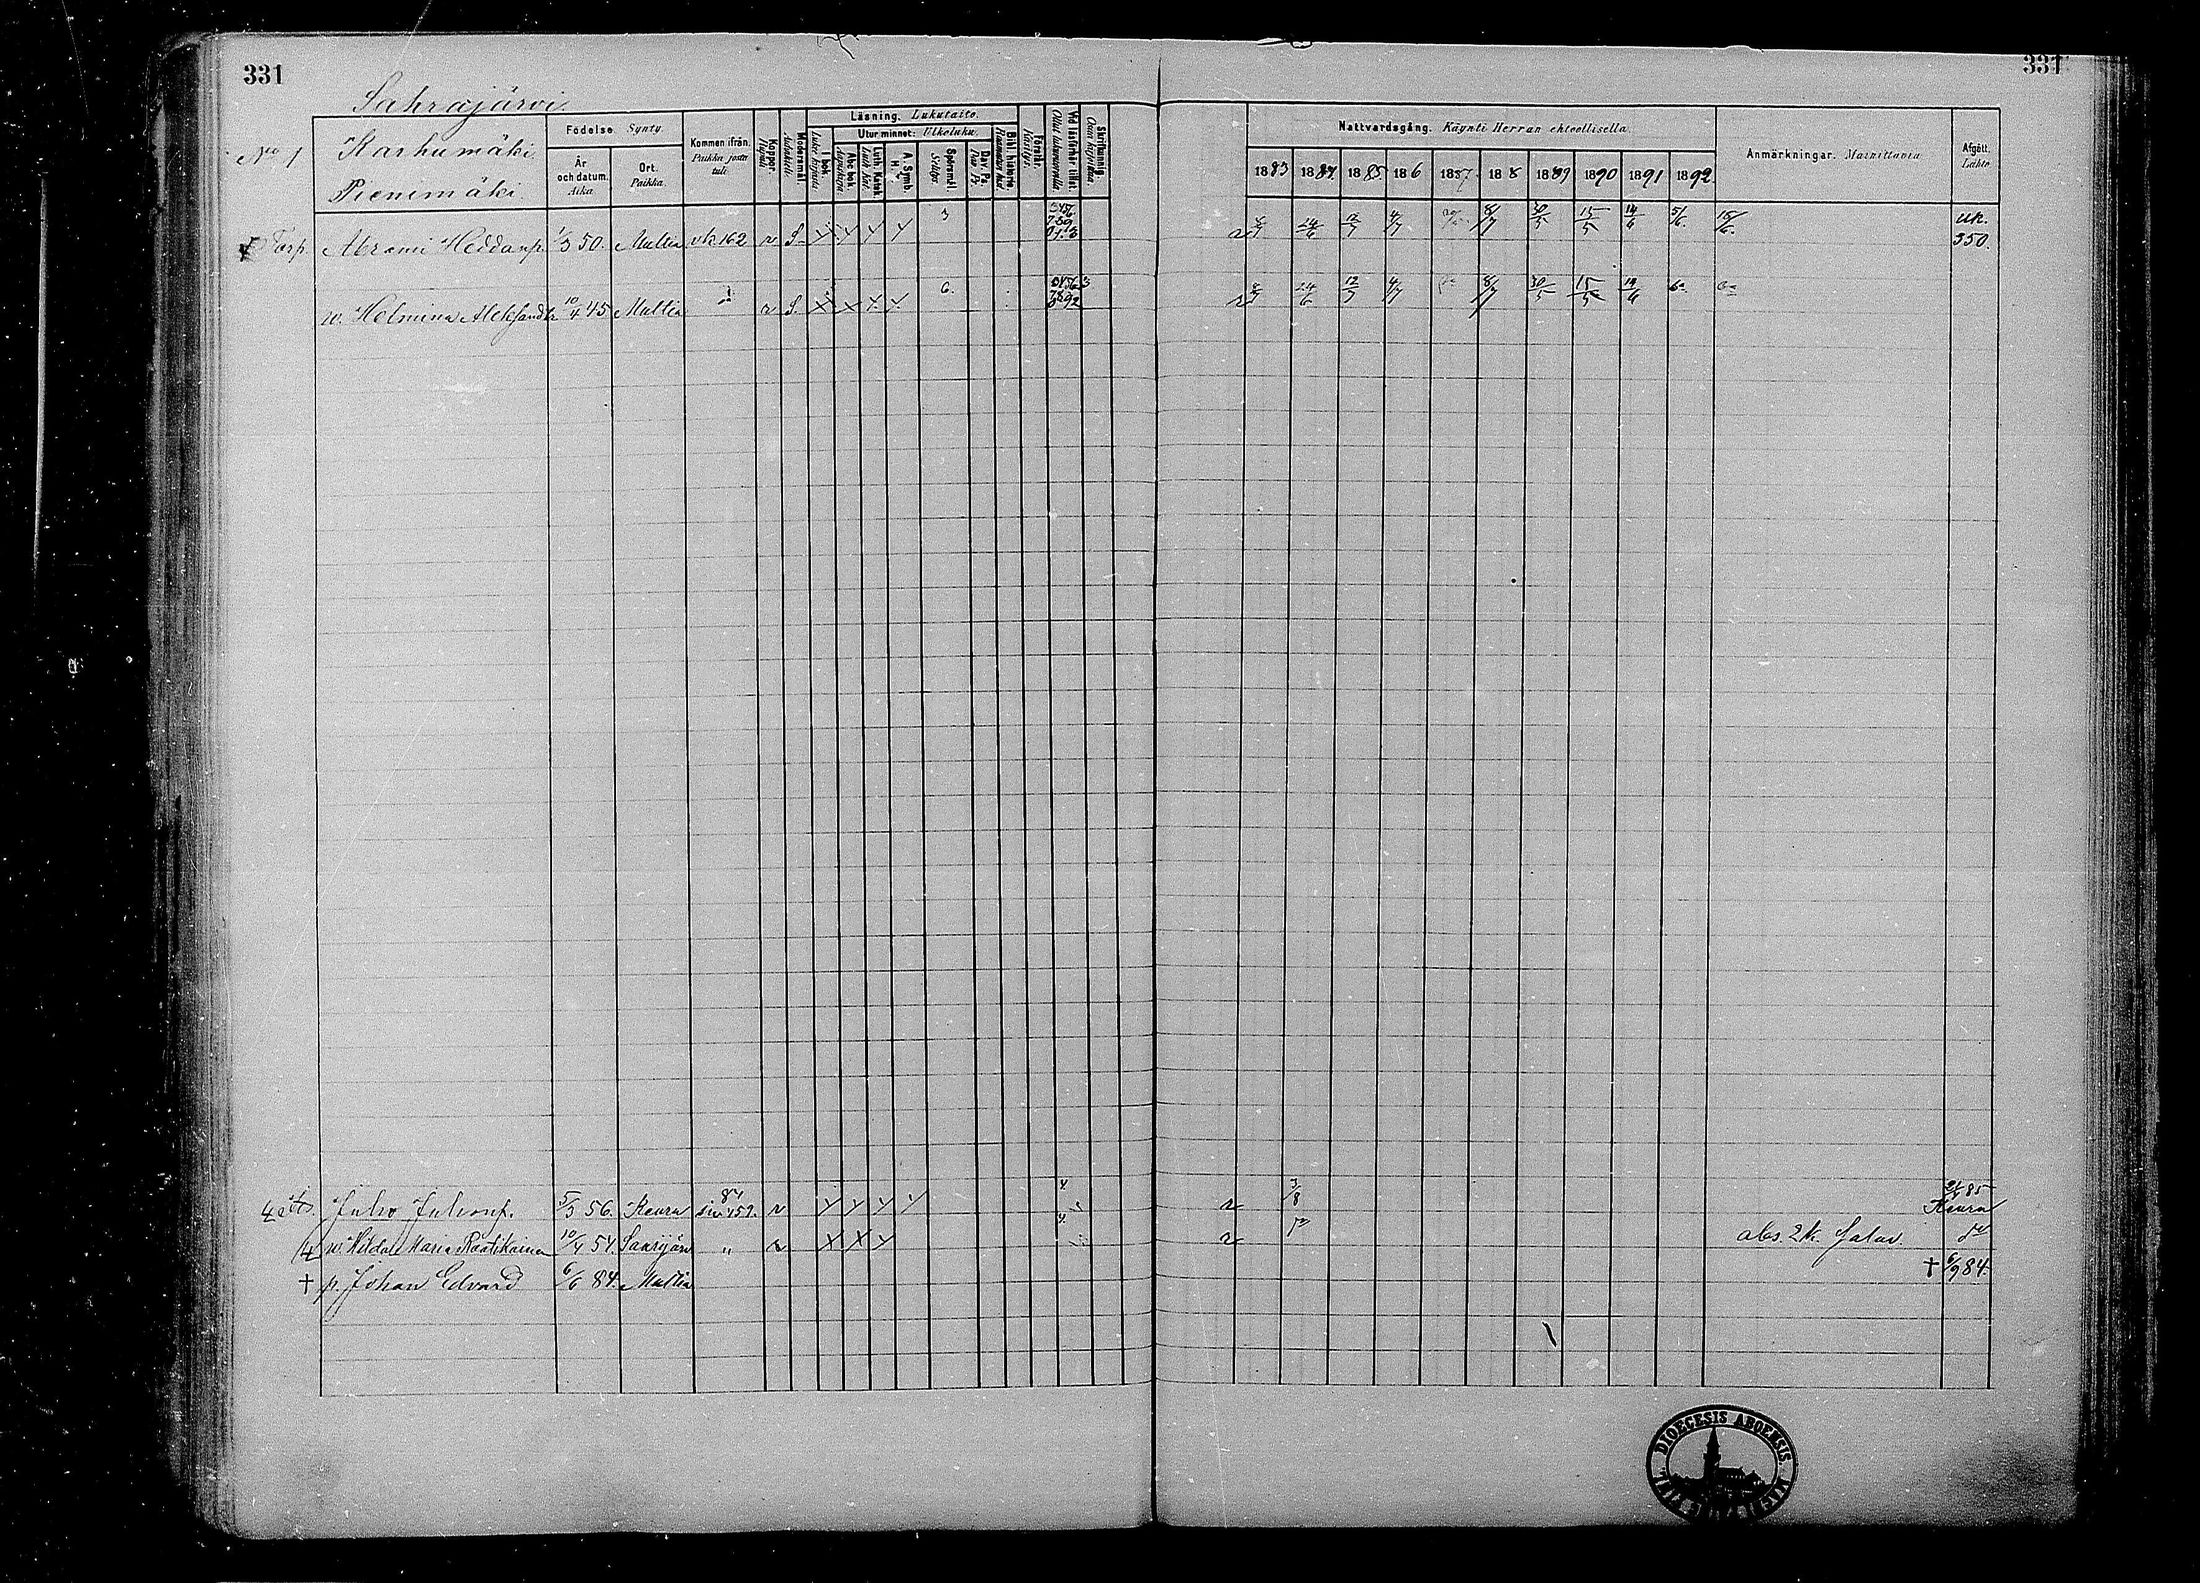 331
331
Sahrajärvi
No 1
Karhumäki
Pienimäki
Födelse. Synty.
År och datum. Aika.
Ort. Paikka.
Kommen ifrån. Paikka josta tuli.
Koppor. Rupuli.
Modersmål. Äidinkieli.
Läsning. Lukutaito.
I bok.
Utur minnet: Ulkoluku.
Abc bok
Luth. Katek.
A. Symb.
Spörsmål
Dav. Ps.
Bibl. historie.
Förstår. Käsitys.
Vid läsförhör tillst.
Skriftkunnig.
Nattvardsgång. Käynti Herran ehtoollisella
1883 1884 1885 1886 1887 188 1889 1890 1891 1892
Anmärkningar. Muistutuksia
Afgått. Lähtö
Torp. Abrami Heddanp. 1/3 50. Multia vk 162 r S 3 8/7 24/6 12/7 4/7 8/7 30/5 15/5 14/6 5/6 15/6 uk. 350.
w. Helmina Aleksandr. 10/4 45 Multia r S. 6. 8/7 24/6 12/7 4/7 8/7 30/5 15/5 14/6
Juho Juhonp. 5/3 56. Keuru 84 siv 159. r 4. r 3/8 85 Keuru
4 w. Hilda Maria Raatikainen 10/4 54. Saarijärv " r 4. r abs. 2 k. salav. do
† p. Johan Edvard 6/6 84. Multia † 6/9 84.
DIOECESIS ABOENSIS